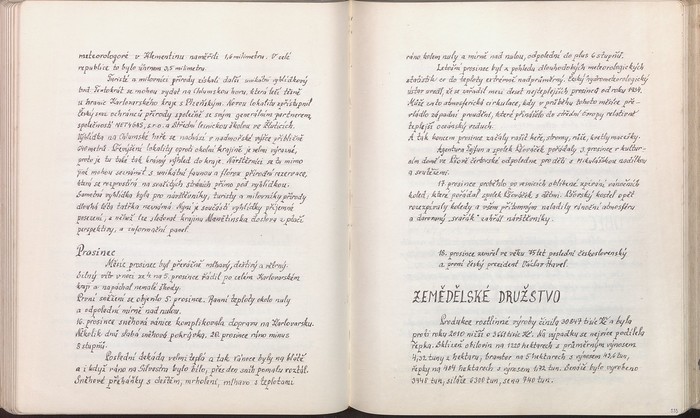 meteorologové v Klementinu naměřili 1,6 milimetru. V celé
republice to bylo úhrnem 3,5 milimetru.
Turisté a milovníci přírody získali další unikátní vyhlídkový
bod. Tentokrát se mohou vydat na Chlumskou horu, která leží těsně
u hranic Karlovarského kraje s Plzeňským. Novou lokalitu zpřístupnil
Český svaz ochránců přírody společně se svým generálním partnerem,
společností NET4GAS, s.r.o. a Střední lesnickou školou ve Žluticích.
Vyhlídka na Chlumské hoře se nachází v nadmořské výšce přibližně
640 metrů. Převýšení lokality oproti okolní krajině je velmi výrazné,
proto je tu také tak krásný výhled do kraje. Návštěvníci se tu mimo
jiné mohou seznámit s unikátní faunou a florou přírodní rezervace,
která se rozprostírá na svažitých stráních přímo pod vyhlídkou.
Samotná vyhlídka byla pro návštěvníky, turisty a milovníky přírody
dlouhá léta takřka neznámá. Nyní je součástí vyhlídky příjemné
posezení, z něhož lze sledovat krajinu Manětínska doslova z ptačí
perspektivy, a informační panel.
Prosinec
Měsíc prosinec byl převážně mlhavý, deštivý a větrný.
Silný vítr v noci ze 4. na 5. prosince řádil po celém Karlovarském
kraji a napáchal nemalé škody.
První sněžení se objevilo 5. prosince. Ranní teploty okolo nuly
a odpolední mírně nad nulou.
16. prosince sněhová vánice komplikovala dopravu na Karlovarsku.
Několik dnů slabá sněhová pokrývka, 20. prosince ráno mínus
8 stupňů.
Poslední dekáda velmi teplá a tak Vánoce byly na blátě
a i když ráno na Silvestra bylo bílo, přes den sníh pomalu roztál.
Sněhové přeháňky s deštěm, mrholení, mlhavo s teplotami
ráno kolem nuly a mírně nad nulou, odpoledne do plus 6 stupňů.
Letošní prosinec byl z pohledu dlouhodobých meteorologických
statistik co do teploty extrémně nadprůměrný. Český hydrometeorologický
ústav uvedl, že se zařadil mezi deset nejteplejších prosinců od roku 1934.
Může za to atmosferická cirkulace, kdy v průběhu tohoto měsíce pře-
vládlo západní proudění, které přinášelo do střední Evropy relativně
teplejší oceánský vzduch.
A tak koncem prosince začaly rašit keře, stromy, růže, kvetly macešky.
Agentura a spolek Kčováček pořádaly 3. prosince v kultur-
ním domě ve Žluticích čertovské odpoledne pro děti s Mikulášskou nadílkou
a soutěžemi.
17. prosince proběhlo po vesnicích oblíbené zpívání vánočních
koled, které pořádal spolek Kčováček s dětmi. Borský kostel opět
rozezpívaly koledy a všem přítomným naladily vánoční atmosféru
a darovaný „svařák“ zahřál návštěvníky.
18. prosince zemřel ve věku 75 let poslední československý
a první český prezident Václav Havel.
ZEMĚDĚLSKÉ DRUŽSTVO
Produkce rostlinné výroby činila 30 847 tisíc Kč a byla
proti roku 2010 nižší o 3661 tisíc Kč. Na výpadku se nejvíce podílela
řepka. Sklizeň obilovin na 1220 hektarech s průměrným výnosem
4,32 tuny z hektaru, brambor na 5 hektarech s výnosem 42,6 tun,
řepky na 484 hektarech s výnosem 1,72 tun. Senáže bylo vyrobeno
3948 tun, siláže 6300 tun, sena 940 tun.